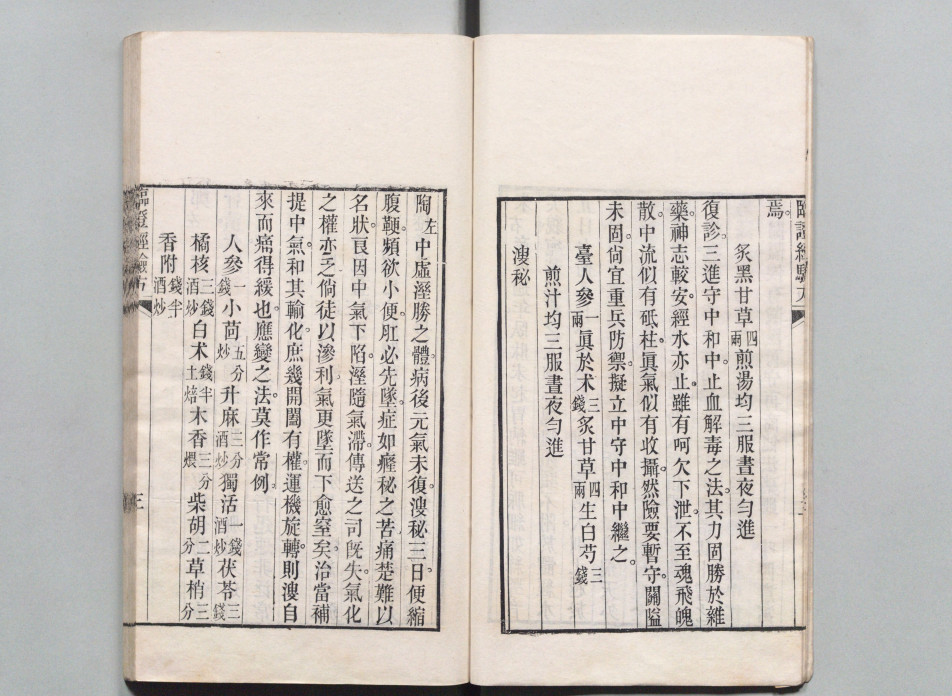 焉。
炙黑甘草四兩煎湯均三服晝夜勻進
復診三進守中和中。止血解毒之法。其力固勝於雜
藥。神志較安。經水亦止。雖有呵欠下泄。不至魂飛魄
散。中流似有砥柱。眞氣似有收攝。然險要暫守。關隘
未固。尚宜重兵防禦。擬立中守中和中繼之。
臺人參一兩眞於术三錢炙甘草四兩生白芍三錢
煎汁均三服晝夜勻進
溲秘
陶左中虛溼勝之體。病後元氣未復。溲秘三日。便縮
腹鞕。頻欲小便。肛必先墜。症如癃秘之苦。痛楚難以
名狀。良因中氣下陷。溼隨氣滯。傳送之司旣失。氣化
之權亦乏。倘徒以滲利。氣更墜而下愈窒矣。治當補
提中氣。和其輸化。庶幾開闔有權。運機旋轉。則溲自
來而痛得緩也。應變之法。莫作常例。
人參一錢小茴五分炒升麻三分酒炒獨活一錢酒炒茯苓三錢
橘核三錢酒炒白术錢半土焙木香三分煨柴胡二分草梢三分
香附錢半酒炒
臨證經驗方
三